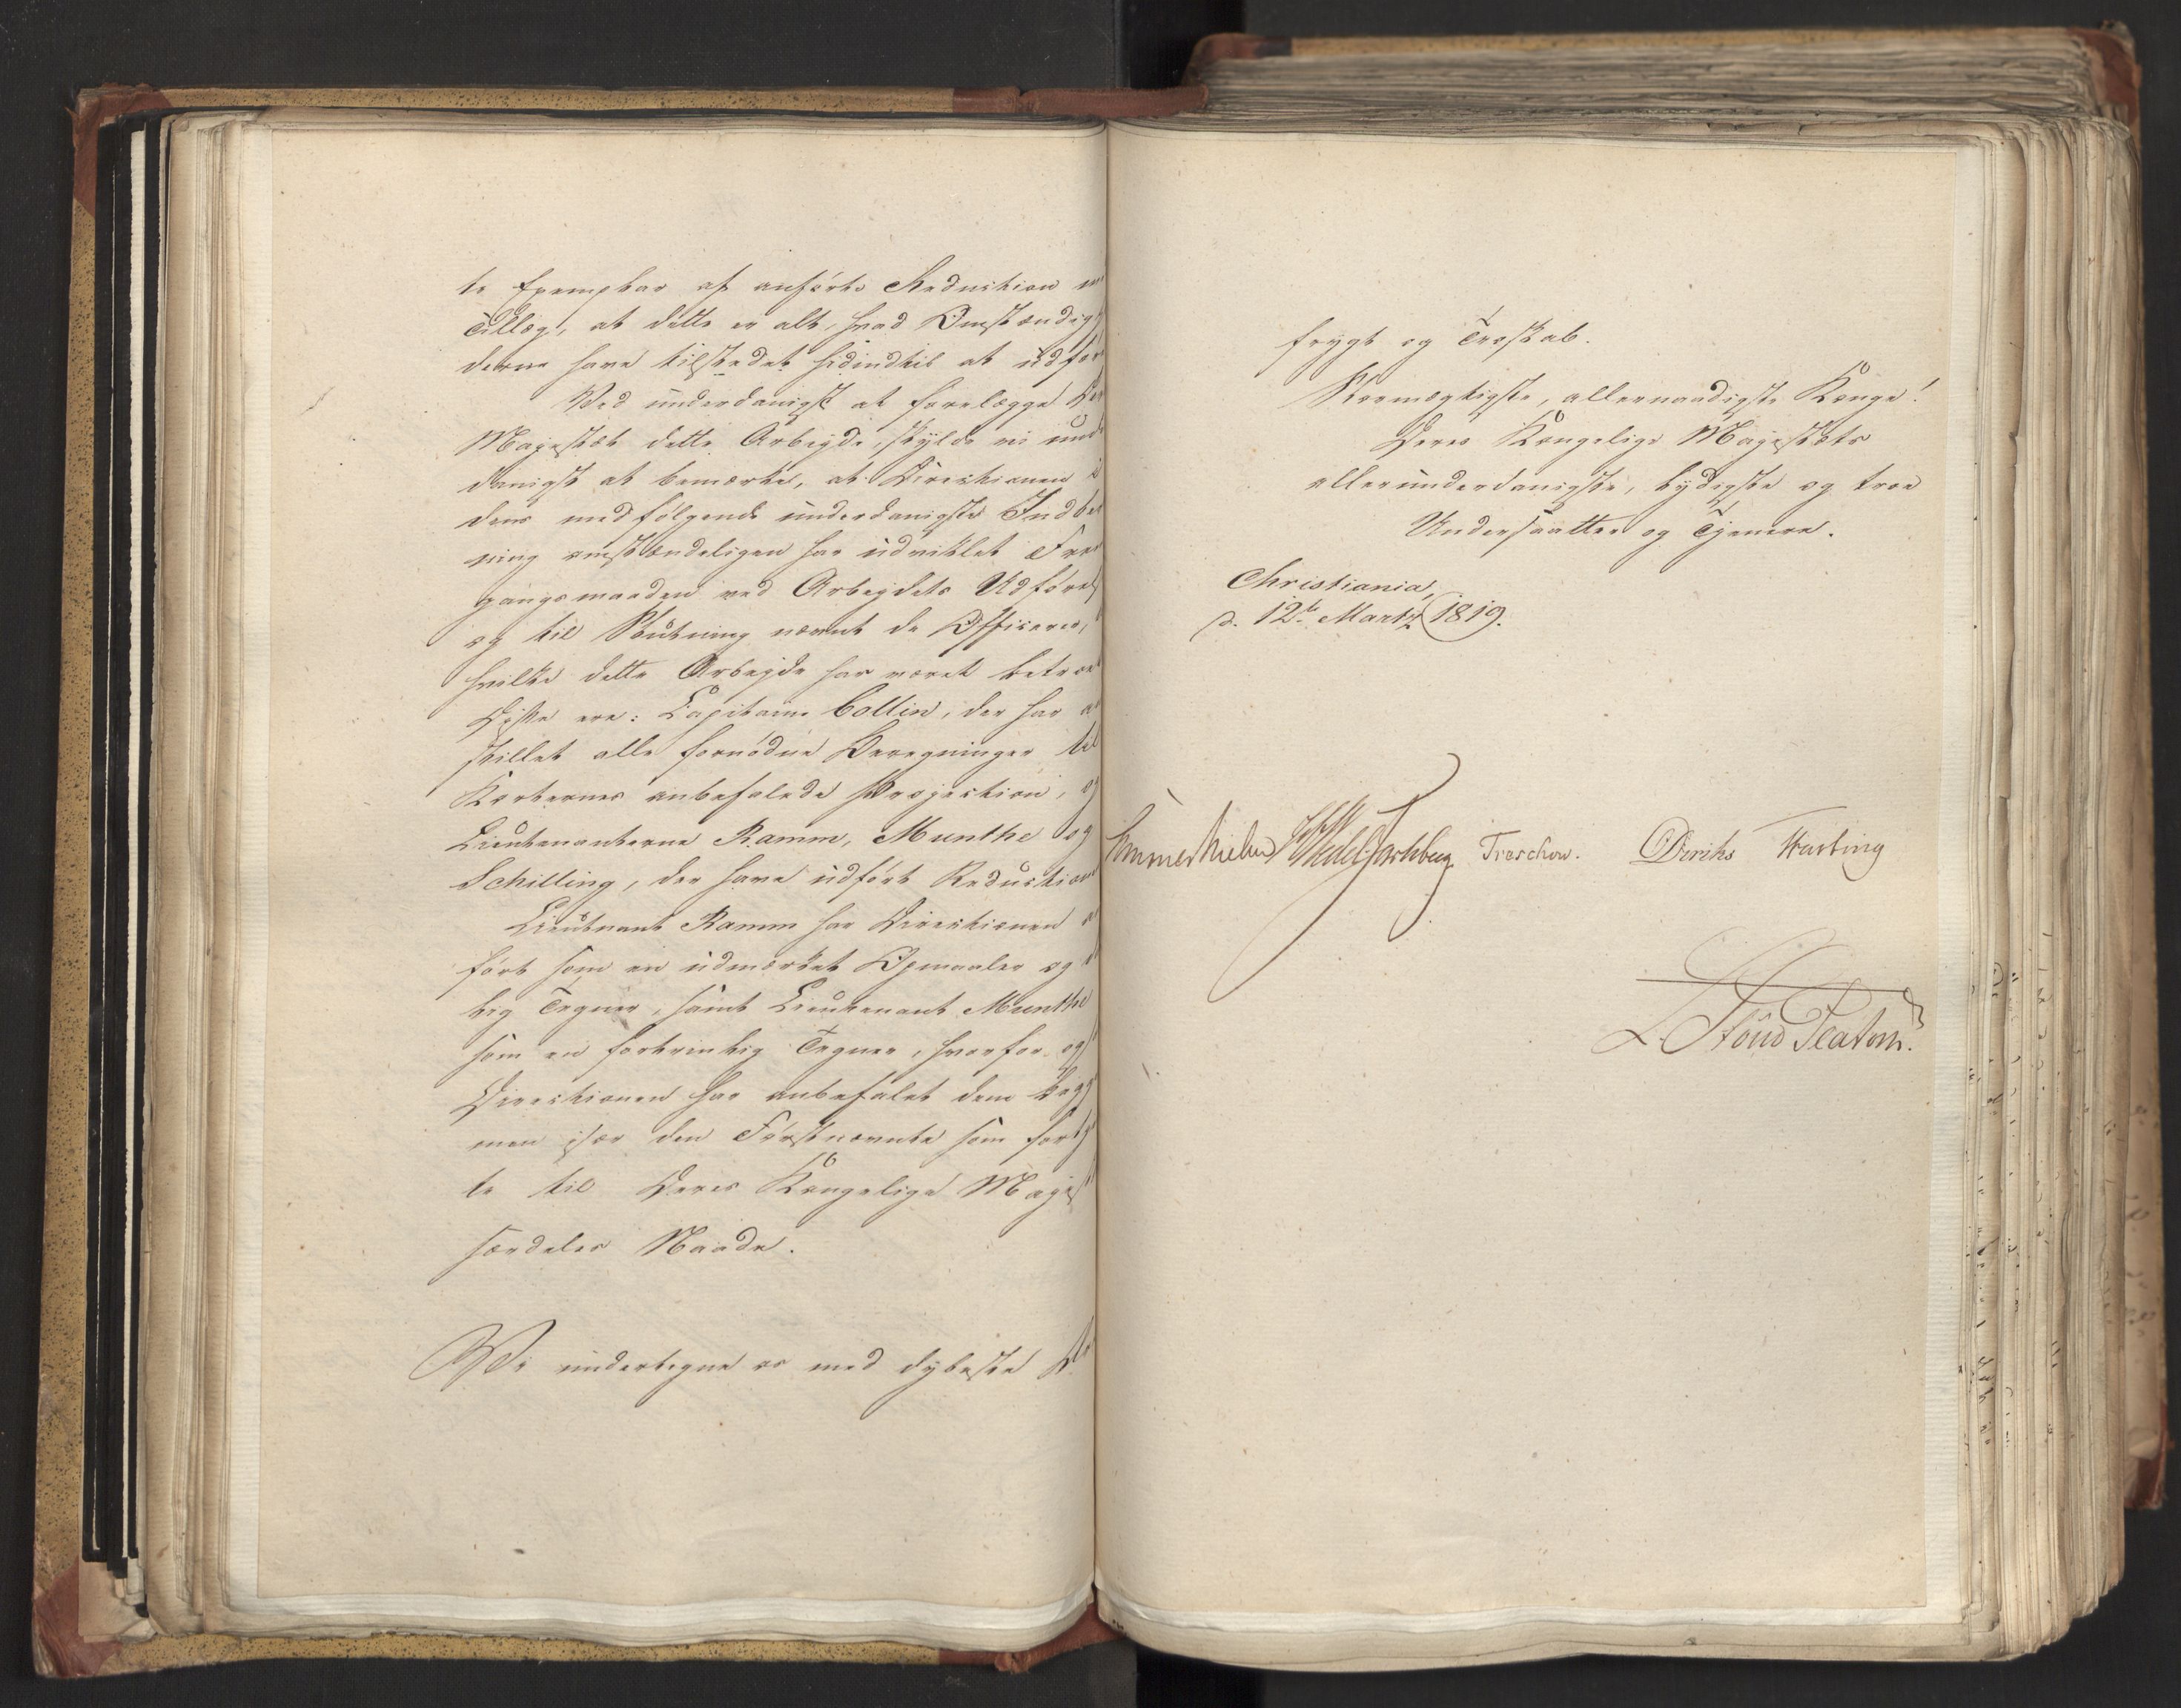 te Exemplar af anførte Reduction
Tillæg, at dette er alt, hvad Omstændig
derne have tilstedet hidindtil at udfør
Ved underdanigst at forelægge Der
Majestæt dette Arbeyde, skylde vi und
danigst at bemærke, at Directionen i
dens medfølgende underdanigste Indbe
ning omstændeligen har udviklet Frem
gangsmaaden ved Arbejdets Udførels
og til Slutning nævnt de Officerer,
hvilke dette Arbejde har været betroe
Disse ere: Capitain Collin, der har
stillet alle fornødne Beregninger til
Karternes anbefalede Projection, og
Lieutenanterne Ramm, Munthe og
Schilling, der have udført Reduction
Lieutnant Ramm har Directionen
ført som en udmærket Opmaaler og
tig Tegner, samt Lieutenant Munthe
som en fortrinlig Tegner, hvorfor og
Directionen har anbefalet dem begg
men især den Førstnævnte som fort
te til Deres Kongelige Majes
særdeles Naade.
Vi undertegne os med dybeste
frygt og Troskab.
Stormægtigste, allernaadigste Konge!
Deres Kongelige Majestæts
allerunderdanigste, lydigste og troe
Undersaatter og Tjenere.
Christiania,
d. 12te Martz 1819.
Sommerhielm Wedel Jarlsberg Treschow. Diriks Fasting
L. Stoud Platou.